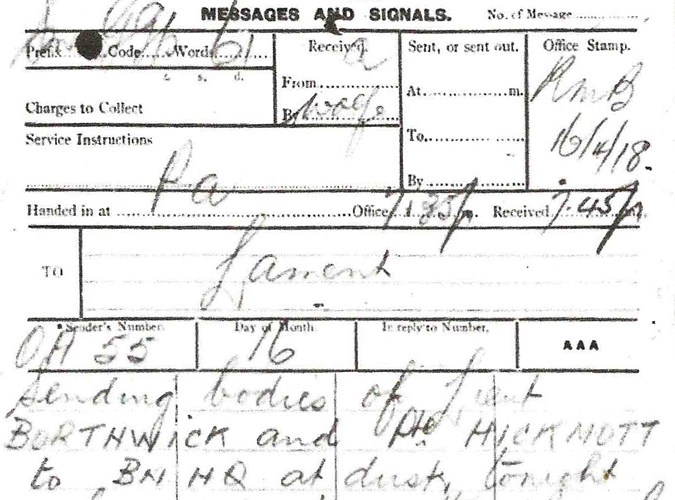 MESSAGES AND SIGNALS. No. of Message
Prefix Code Words 61
£ s. d.
Charges to Collect
Service Instructions
Pa
Received.
From
By
Sent, or sent out.
At m.
To
By
Office Stamp.
RmB
16/4/18.
Handed in at Office 7.35p m. Received 7.45p m.
TO Lament
Sender's Number. Day of Month. In reply to Number. AAA
OA 55 16
Sending bodies of Lieut
BORTHWICK and Pte HICKNOTT
to BN HQ at dusk, tonight